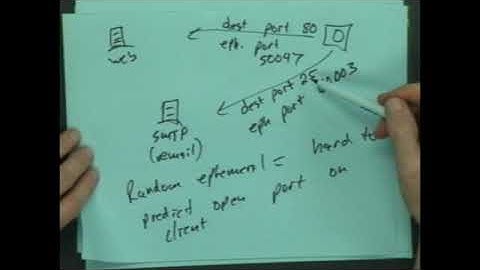 dest port 80
web
eph. port
50097
dest port 25
eph port
smtp
(email)
Random ephemeral = hard to
predict open port on
client